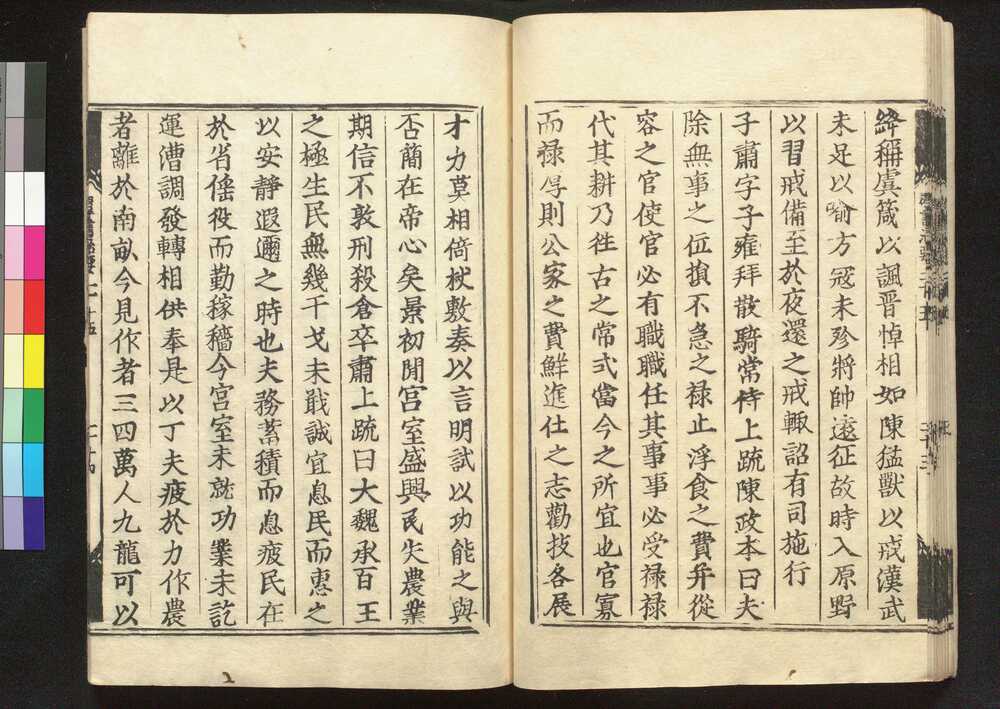 絳稱虞箴以諷晋悼相如陳猛獸以戒漢武
未足以喻方冦未殄將帥遠征故時入原野
以習戎備至於夜還之戒輙詔有司施行
子肅字子雍拜散騎常侍上䟽陳政本曰夫
除無事之位損不急之禄止浮食之費幷從
容之官使官必有職職任其事事必受禄禄
代其耕乃徃古之常式當今之所宜也官寡
而禄厚則公家之費鮮進仕之志勸技各展
才力莫相倚杖敷奏以言明試以功能之與
否簡在帝心矣景初閒宫室盛興民失農業
期信不敦刑殺倉卒肅上䟽曰大魏承百王
之極生民無幾干戈未戢誠宜息民而惠之
以安静遐邇之時也夫務蓄積而息疲民在
於省傜役而勤稼穡今宫室未就功業未訖
運漕調發轉相供奉是以丁夫疲於力作農
者離於南畝今見作者三四萬人九龍可以